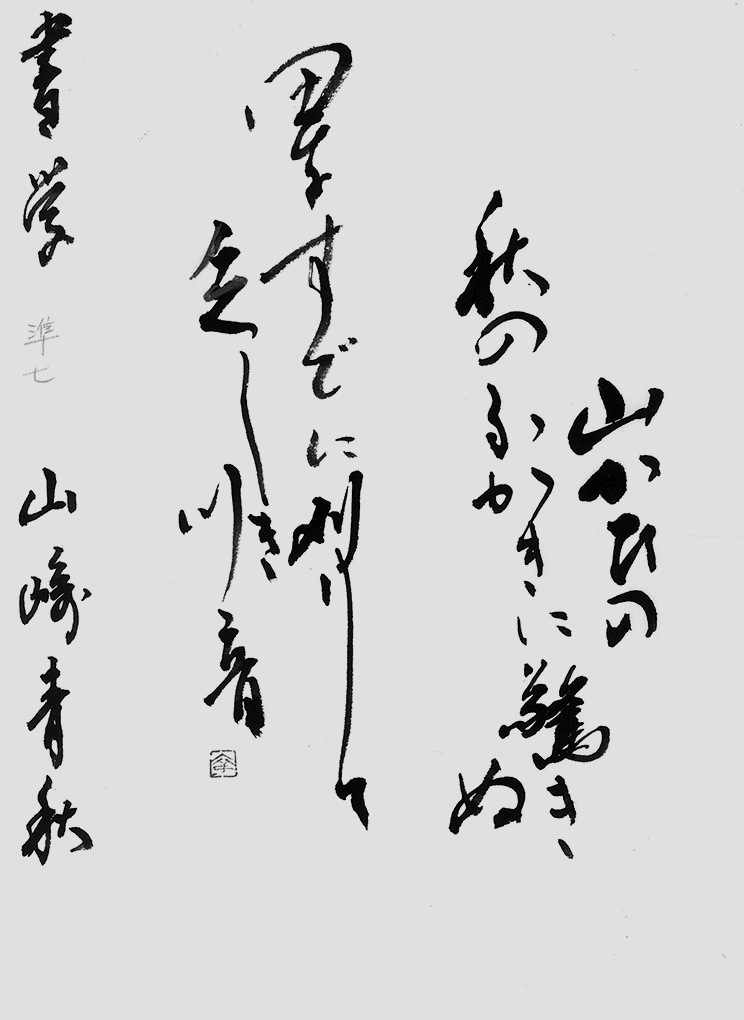 山かひの
秋のふかきに驚きぬ
田をすでに刈りて
乏しき川音
書学 準七 山崎青秋